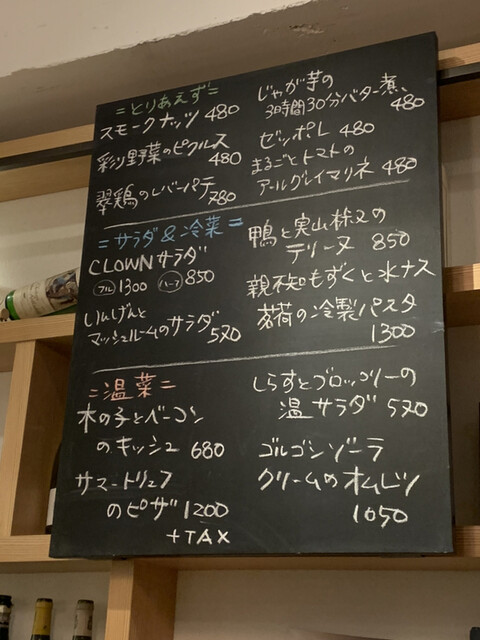 =とりあえず=
スモークナッツ 480
彩り野菜のピクルス
480
翠鶏のレバーパテ
780
じゃが芋の
3時間30分バター煮
480
ゼッポレ 480
まるごとトマトの
アールグレイマリネ 480
=サラダ&冷菜=
CLOWNサラダ
フル 1300 ハーフ 850
いんげんと
マッシュルームのサラダ 570
鴨と実山椒の
テリーヌ 850
もずくと水ナス
茗荷の冷製パスタ
1300
=温菜=
木の子とベーコン
のキッシュ 680
サマートリュフ
のピザ 1200
+TAX
しらすとブロッコリーの
温サラダ 570
ゴルゴンゾーラ
クリームのオムレツ
1050